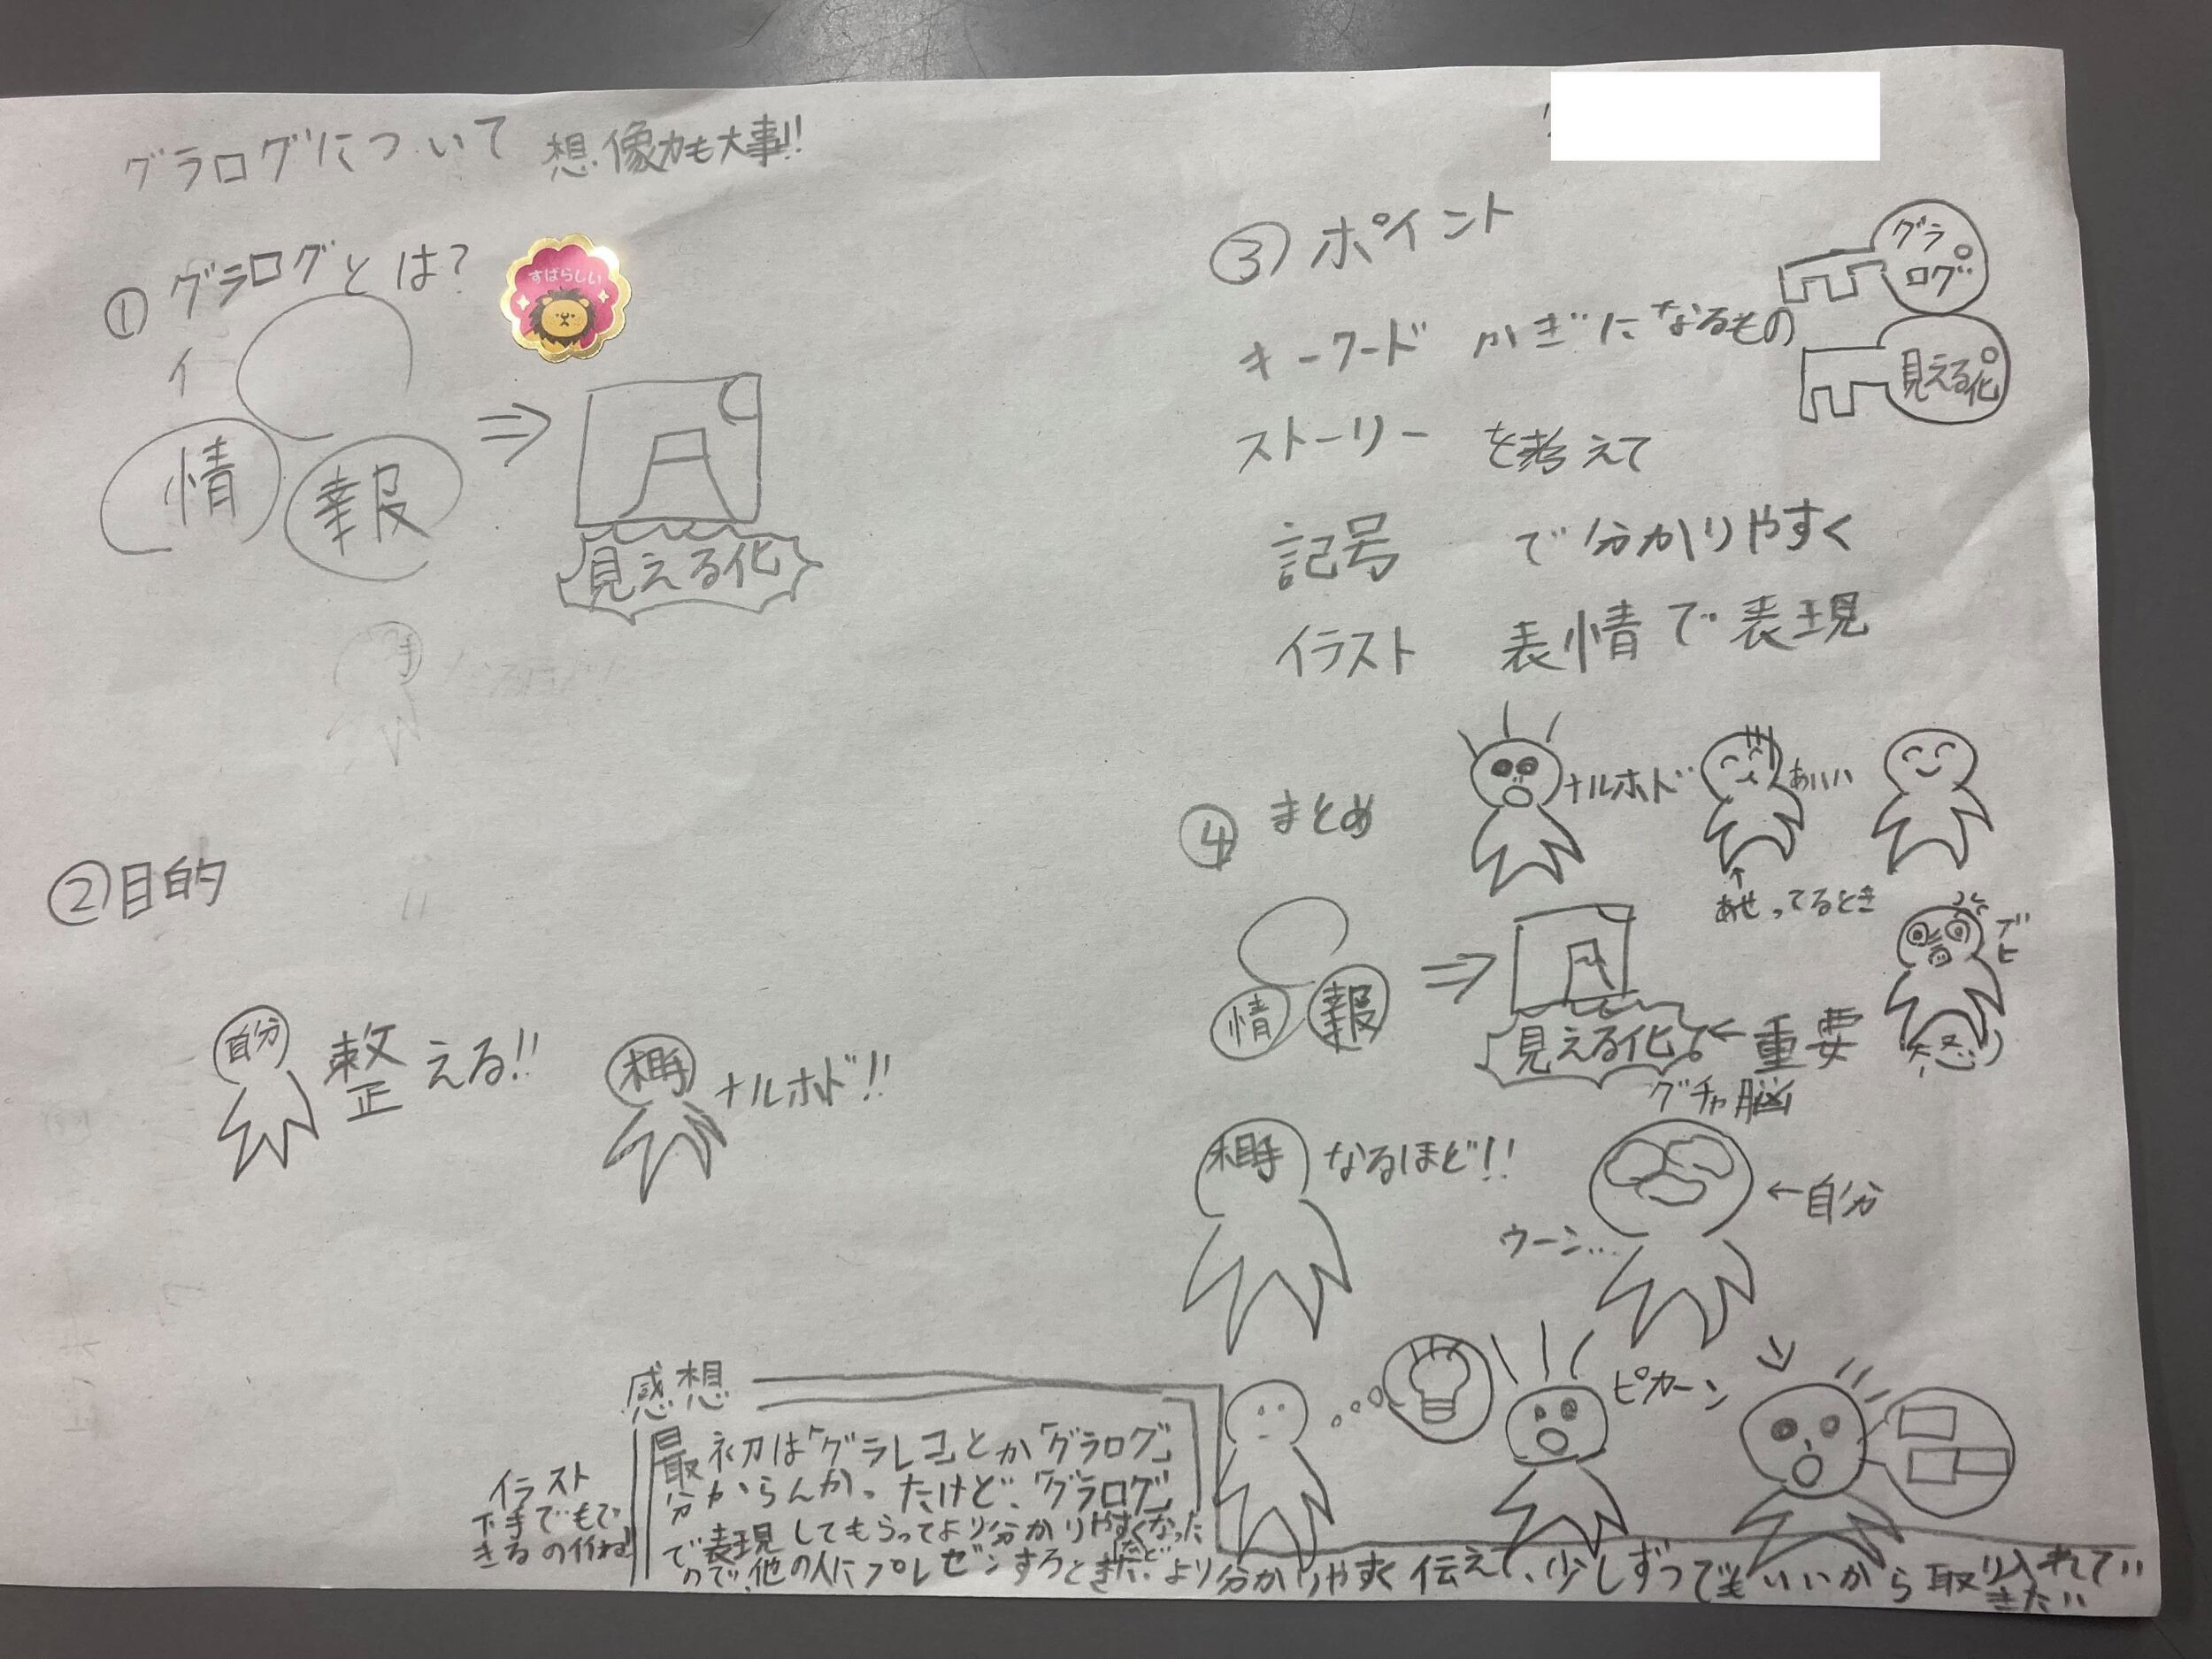 グラログについて 想像力も大事!!
①グラログとは?
すばらしい
イ
情報
見える化
②目的
自分 整える!!
相手 ナルホド!!
③ポイント
グラログ
キーワード かぎになるもの
見える化
ストーリー を考えて
記号 で分かりやすく
イラスト 表情で表現
④まとめ
ナルホド
あハハ
↑
あせってるとき
情報
見える化 ← 重要
(怒り)
グチャ脳
相手 なるほど!!
←自分
ウーン…
ピカーン
感想
最初は「グラレコ」とか「グラログ」
分からんかったけど、「グラログ」
で表現してもらってより分かりやすくなった
ので、他の人にプレゼンするときなど、より分かりやすく伝えて、少しずつでもいいから取り入れてい
きたい
イラスト
下手でもで
きるの